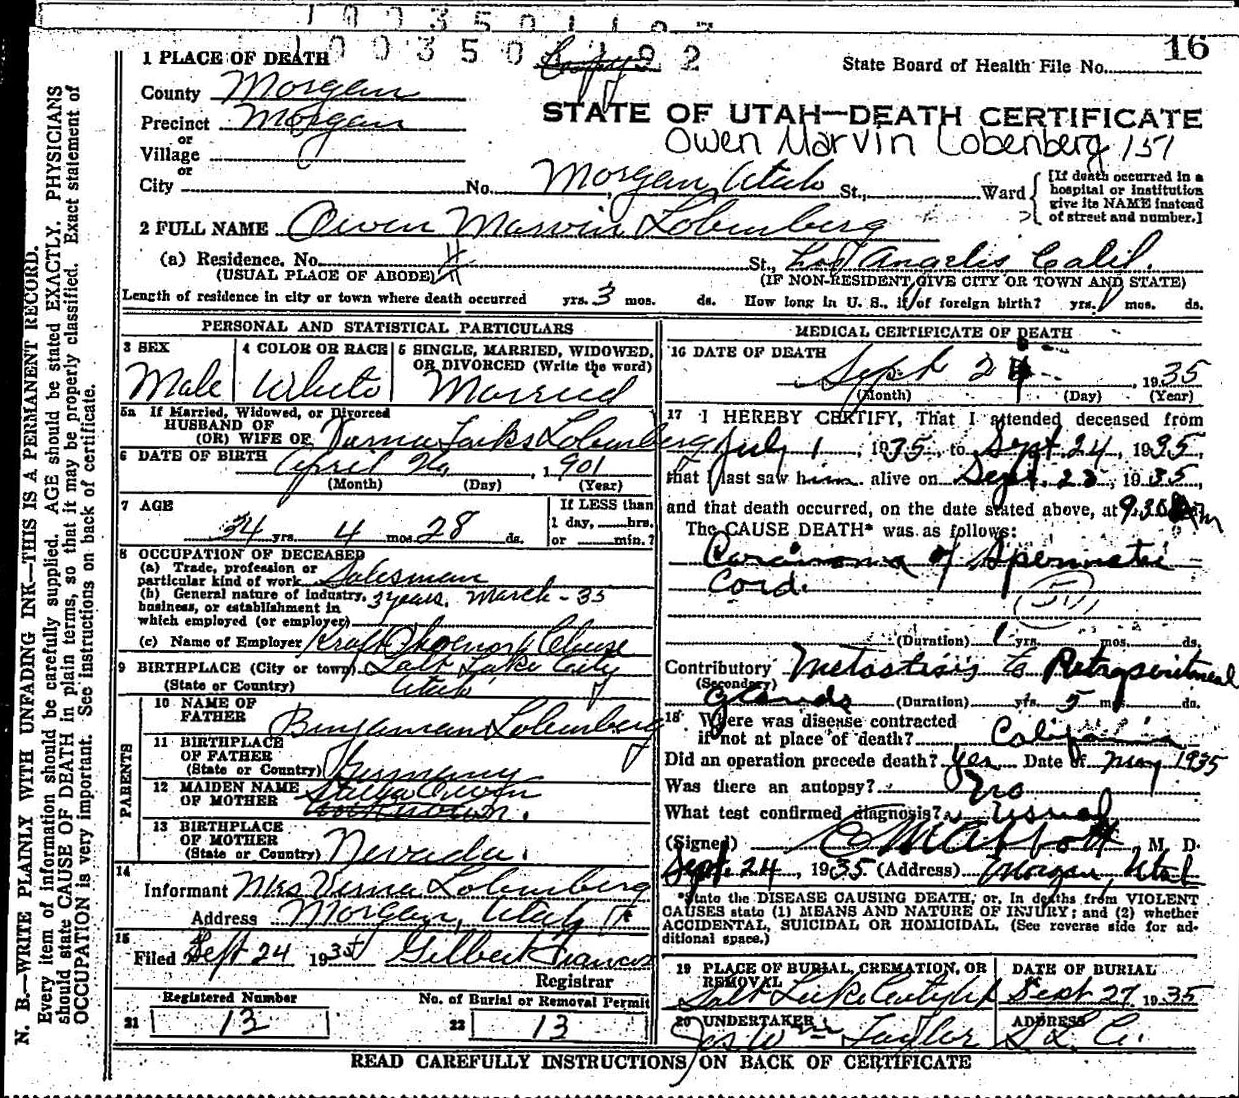 1 0 0 3 5 0 1 1 9 2
16
1 PLACE OF DEATH
State Board of Health File No.
County Morgan
STATE OF UTAH—DEATH CERTIFICATE
Precinct Morgan
Owen Marvin Lobenberg 151
or
Village
or
City No. Morgan, Utah St., Ward
[If death occurred in a
hospital or institution
give its NAME instead
of street and number.]
2 FULL NAME Owen Marvin Lobenberg
(a) Residence. No. St., Los Angelis Calif.
(USUAL PLACE OF ABODE) (IF NON-RESIDENT GIVE CITY OR TOWN AND STATE)
Length of residence in city or town where death occurred yrs. 3 mos. ds. How long in U. S., if of foreign birth? yrs. mos. ds.
PERSONAL AND STATISTICAL PARTICULARS
3 SEX Male
4 COLOR OR RACE White
5 SINGLE, MARRIED, WIDOWED,
OR DIVORCED (Write the word)
Married
5a If Married, Widowed, or Divorced
HUSBAND OF
(OR) WIFE OF Verna Lobenberg
6 DATE OF BIRTH April 26, 1901
(Month) (Day) (Year)
7 AGE
34 yrs. 4 mos. 28 ds.
If LESS than
1 day, hrs.
or min.?
8 OCCUPATION OF DECEASED
(a) Trade, profession or
particular kind of work Salesman
(b) General nature of industry,
business, or establishment in
which employed (or employer)
3 years. March - 35
(c) Name of Employer Kraft Phoenix Cheese
9 BIRTHPLACE (City or town) Salt Lake City
(State or Country) Utah
PARENTS
10 NAME OF
FATHER Benjamin Lobenberg
11 BIRTHPLACE
OF FATHER
(State or Country) Germany
12 MAIDEN NAME
OF MOTHER Stella Owen
13 BIRTHPLACE
OF MOTHER
(State or Country) Nevada.
14
Informant Mrs Verna Lobenberg
Address Morgan, Utah
15
Filed Sept 24 1935 Gilbert Francis
Registrar
Registered Number
21 13
No. of Burial or Removal Permit
22 13
MEDICAL CERTIFICATE OF DEATH
16 DATE OF DEATH
Sept 24, 1935
(Month) (Day) (Year)
17 I HEREBY CERTIFY, That I attended deceased from
July 1, 1935, to Sept 24, 1935,
that I last saw him alive on Sept. 23, 1935
and that death occurred, on the date stated above, at 9.30 m
The CAUSE DEATH* was as follows:
Carcinoma of Spermatic
Cord.
(Duration) 1 yrs. mos. ds.
Contributory Metastisis to Retroperitoneal
(Secondary)
Glands (Duration) yrs. 5 mos. ds.
18 Where was disease contracted
if not at place of death? California
Did an operation precede death? Yes Date of May 1935
Was there an autopsy? No
What test confirmed diagnosis?
(Signed) E M Abbott, M. D.
Sept. 24, 1935. (Address) Morgan, Utah
*State the DISEASE CAUSING DEATH, or, in deaths from VIOLENT
CAUSES state (1) MEANS AND NATURE OF INJURY; and (2) whether
ACCIDENTAL, SUICIDAL OR HOMICIDAL. (See reverse side for ad-
ditional space.)
19 PLACE OF BURIAL, CREMATION, OR
REMOVAL
Salt Lake City
DATE OF BURIAL
Sept 27, 1935
20 UNDERTAKER
Jos Wm Taylor
ADDRESS
S. L. C.
READ CAREFULLY INSTRUCTIONS ON BACK OF CERTIFICATE
N. B.—WRITE PLAINLY WITH UNFADING INK—THIS IS A PERMANENT RECORD.
Every item of information should be carefully supplied. AGE should be stated EXACTLY. PHYSICIANS
should state CAUSE OF DEATH in plain terms, so that it may be properly classified. Exact statement of
OCCUPATION is very important. See instructions on back of certificate.